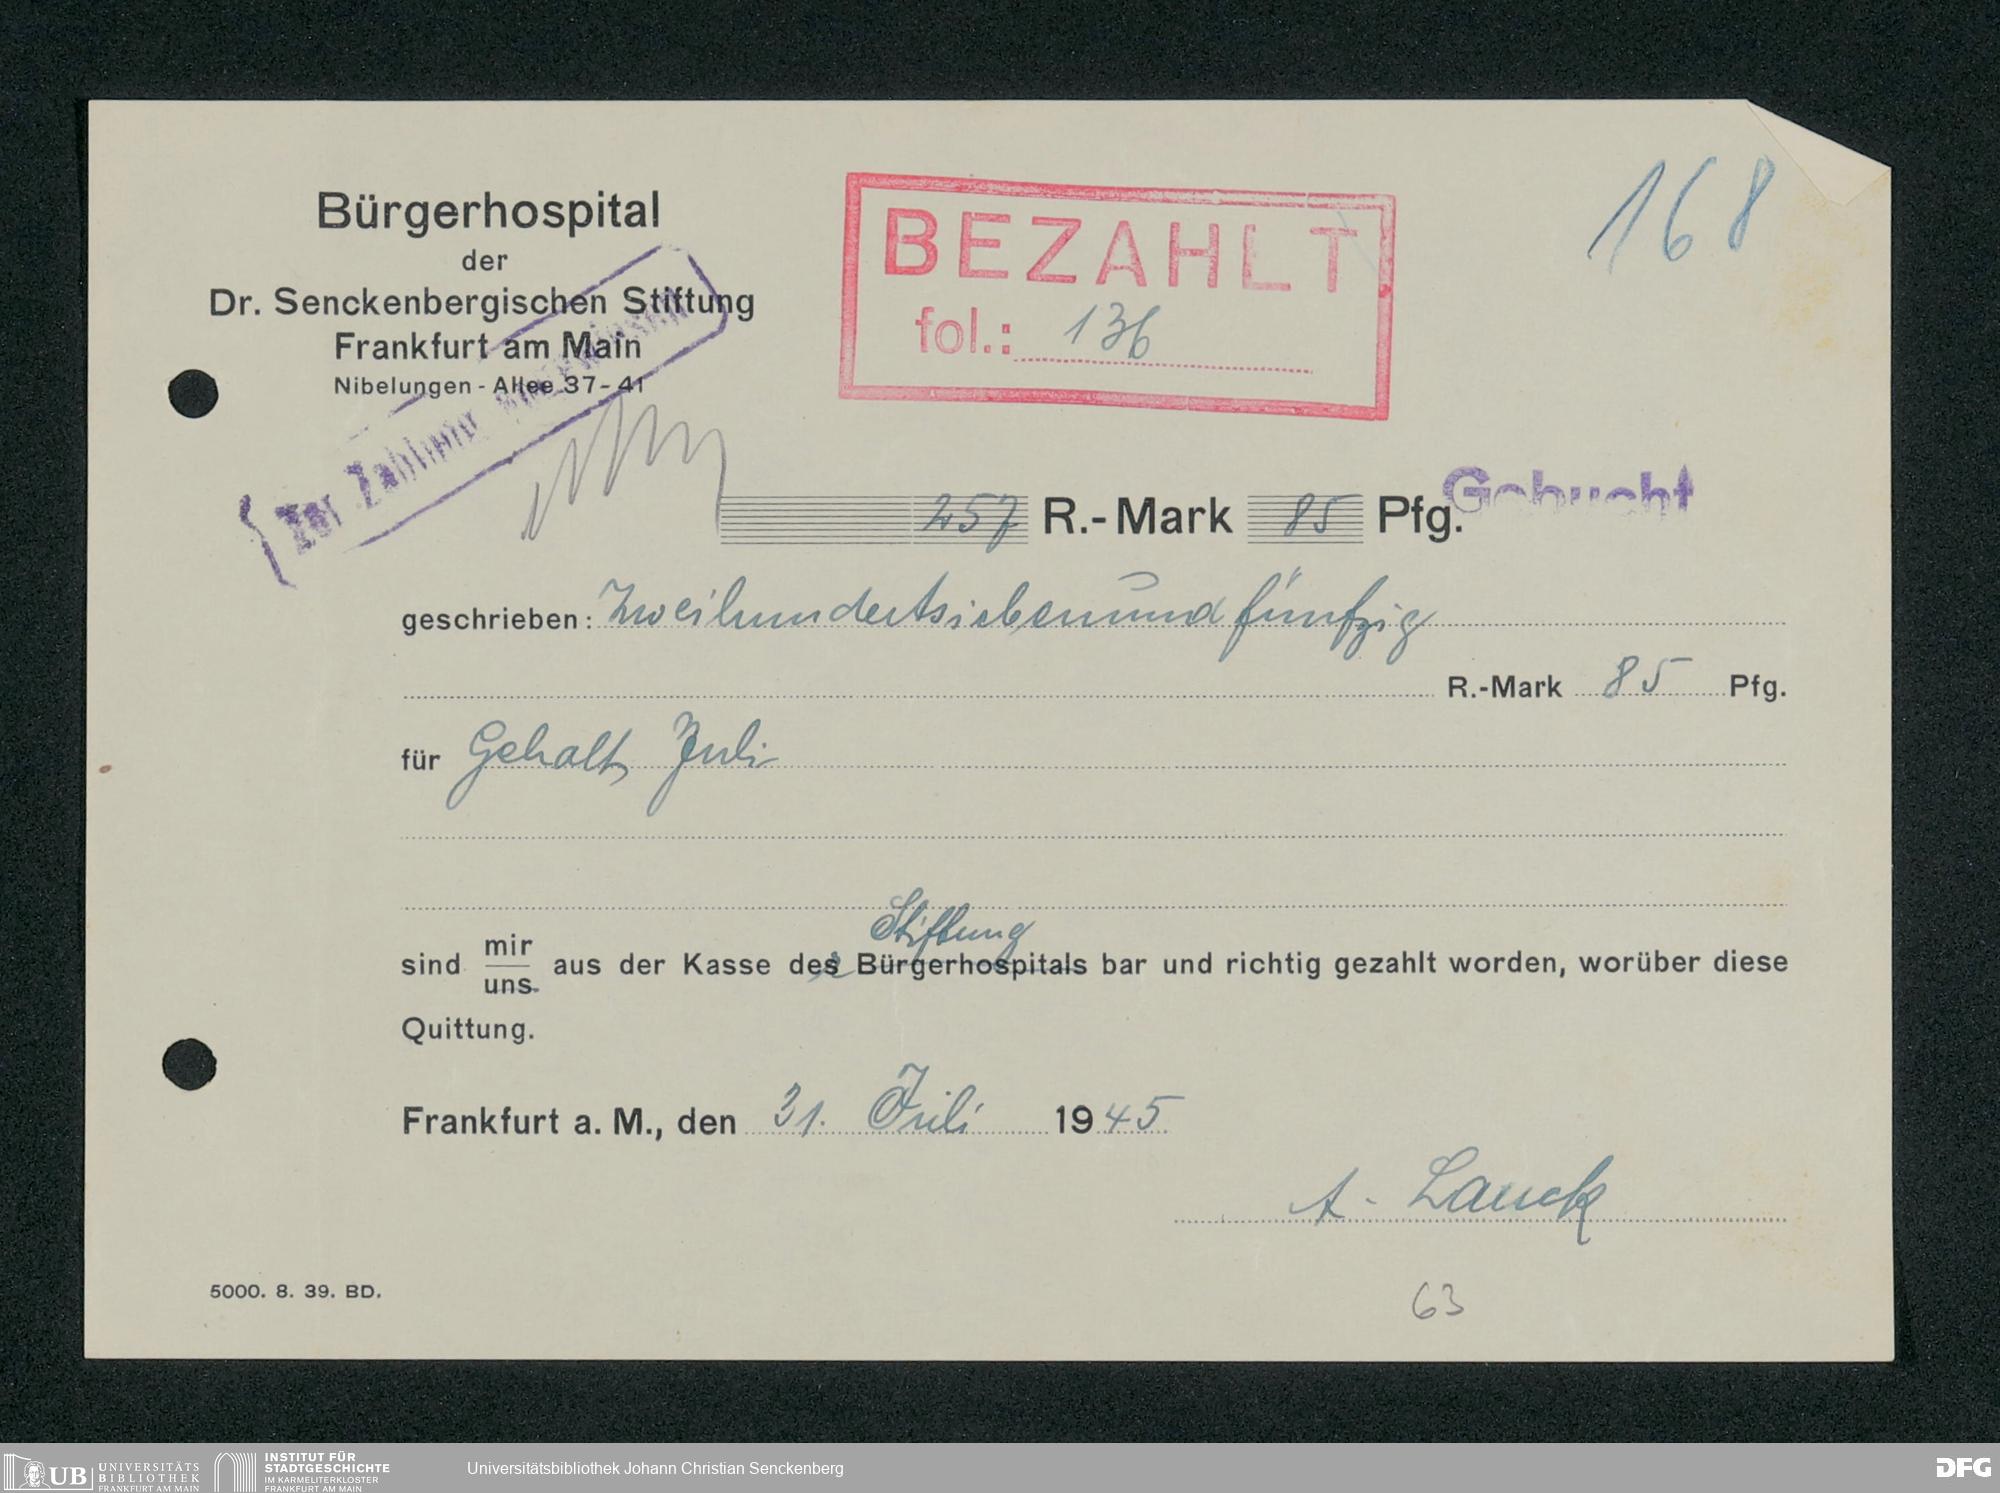 Bürgerhospital
der
Dr. Senckenbergischen Stiftung
Frankfurt am Main
Nibelungen-Allee 37-41
Zur Zahlung angewiesen
BEZAHLT
fol.: 136
168
Gebucht
257 R.-Mark 85 Pfg.
geschrieben: Zweihundertsiebenundfünfzig
R.-Mark 85 Pfg.
für Gehalt Juli
Stiftung
sind mir/uns aus der Kasse des Bürgerhospitals bar und richtig gezahlt worden, worüber diese
Quittung.
Frankfurt a. M., den 31. Juli 1945
A. Lauck
5000. 8. 39. BD.
63
UB UNIVERSITÄTS
BIBLIOTHEK
FRANKFURT AM MAIN
INSTITUT FÜR
STADTGESCHICHTE
IM KARMELITERKLOSTER
FRANKFURT AM MAIN
Universitätsbibliothek Johann Christian Senckenberg
DFG